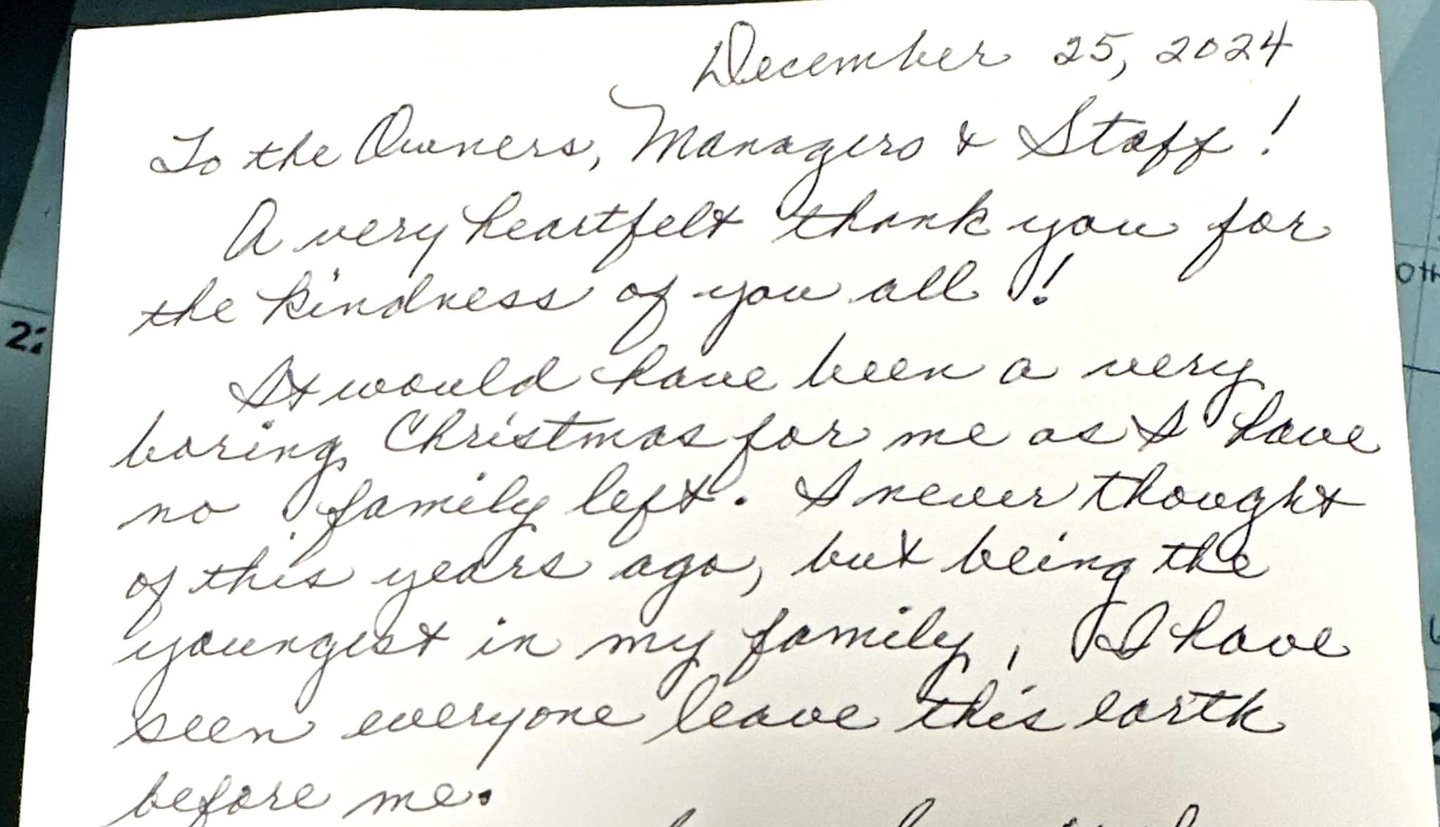 December 25, 2024
To the Owners, Managers & Staff!
A very heartfelt thank you for
the kindness of you all!
It would have been a very
boring Christmas for me as I have
no family left. I never thought
of this years ago, but being the
youngest in my family, I have
seen everyone leave this earth
before me.
22